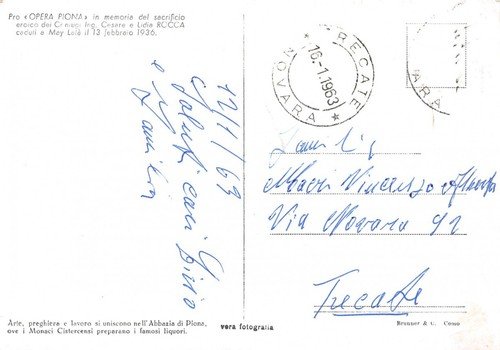 Pro «OPERA PIONA» in memoria del sacrificio
eroico dei Coniugi Ing. Cesare e Lidia ROCCA
caduti a May Lalà il 13 febbraio 1936.
TRECATE
16.-1.1963
* NOVARA *
ARA
12/1/63
Saluti cari
e
Famiglia
Macri Vincenzo
Via Novara 92
Trecate
Arte, preghiera e lavoro si uniscono nell'Abbazia di Piona,
ove i Monaci Cistercensi preparano i famosi liquori.
vera fotografia
Brunner & C. Como